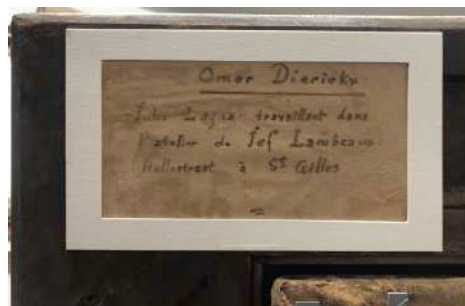 Omer Dierickx
Jules Lagae travaillant dans
l'atelier de Jef Lambeaux
à St Gilles